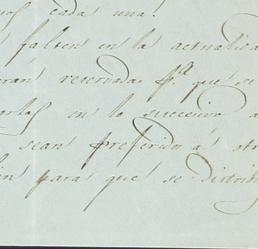 cada una.
falten en la actualida
rán reservadas p.ª que se
en lo sucesivo a
sean preferidos á otr
para que se distrib